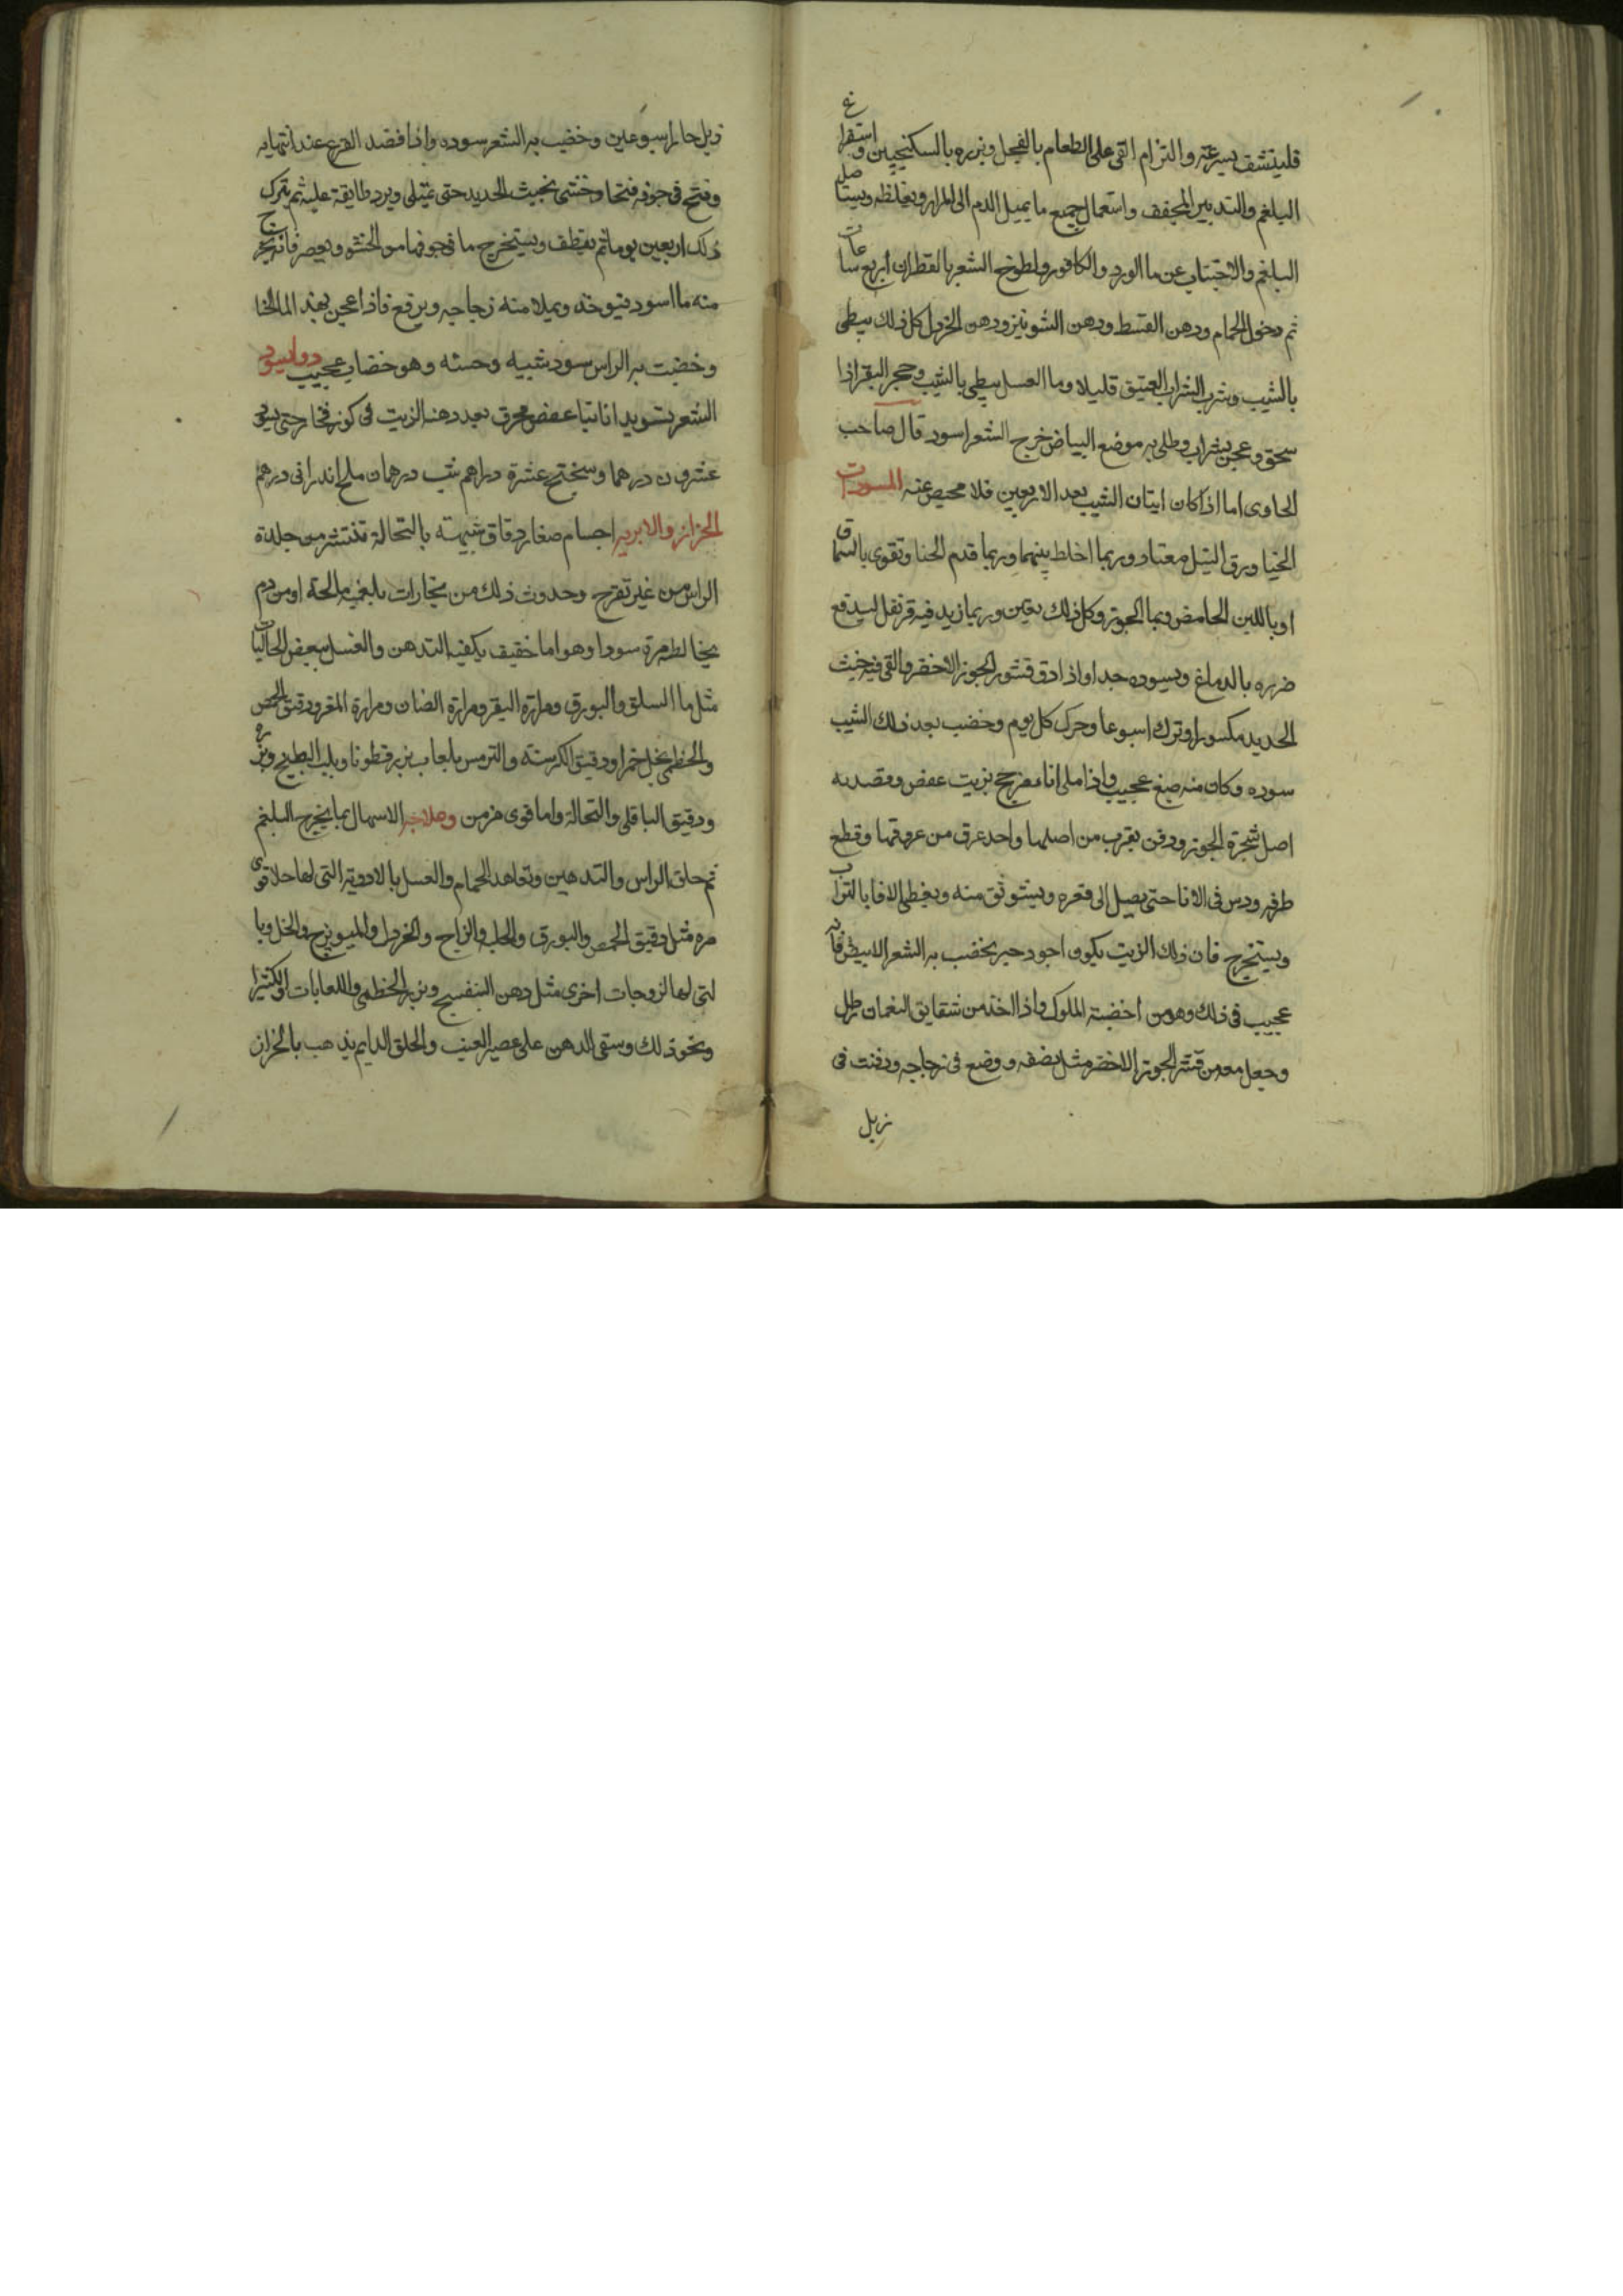 فلينشف بسرعة والتزام القى على الطعام بالفجل وبزره بالسكنجبين واستفراغ
البلغم والتدبير المجفف واستعمال جميع ما يميل الدم الى المرار ويغلظه ويستاصل
البلغم والاجتناب عن ما الورد والكافور ولطوخ الشعر بالقطران اربع ساعات
ثم دخول الحمام ودهن القسط ودهن الشونيز ودهن الخردل كل ذلك يبطى
بالشيب وشرب الشراب العتيق قليلا وما العسل يبطى بالشيب وحجر البقر اذا
سحق وعجن بشراب وطلى به موضع البياض خرج الشعر اسود قال صاحب
الحاوى اما اذا كان ابتان الشيب بعد الاربعين فلا محيص عنه المسودات
الحنا ورق النيل معتاد وربما اخلط بينهما وربما قدم الحنا وتقوى بالسماق
او باللبن الحامض وبما الجوز وكل ذلك يعين وربما زيد فيه قرنفل ليدفع
ضرره بالدماغ ويسوده جدا واذا دق قشور الجوز الاخضر والقى فيه خبث
الحديد مكسورا وترك اسبوعا وحرك كل يوم وخضب بعد ذلك الشيب
سوده وكان منه صبغ عجيب واذا ملى اناء مزجج بزيت عفص وقصد به
اصل شجرة الجوز ودفن بقرب من اصلها واحد عرق من عروقها وقطع
طرفه ودس فى الانا حتى يصل الى قعره ويستوثق منه ويغطى الانا بالتراب
ويستخرج فان ذلك الزيت يكون اجود حبر يخضب به الشعر الابيض فانه
عجيب فى ذلك وهو من اخضبة الملوك واذا اخذ من شقايق النعمان رطل
وجعل معه من قشر الجوز الاخضر مثل نصفه ووضع فى زجاجه ودفنت فى
زبل
زبل حار اسبوعين وخضب به الشعر سوده واذا قصد القرع عند انتهايه
وفتح فى جوفه فتحا وحشى بخبث الحديد حتى يمتلى ويرد طابقة عليه ثم يترك
ذلك اربعين يوما ثم يقطف ويستخرج ما فى جوفها من الحشو ويعصر فانه يخرج
منه ما اسود فيوخذ ويملا منه زجاجه ويرفع فاذا عجن بهذ الما الحنا
وخضبت به الراس سود شيبه وحسنه وهو خضاب عجيب دوا يسود
الشعر تسويدا ثابتا عفص محرق بعد دهنه الزيت فى كوز فخار حتى
عشرون درهما وسختج عشرة دراهم شب درهمان ملح اندرانى درهم
الحزاز والابريه اجسام صغار دقاق شبيهة بالنحالة تنتشر من جلدة
الراس من غير تقرح وحدوث ذلك من بخارات بلغمية مالحة او من دم
يخالطه مرة سودا وهو اما خفيف يكفيه التدهن والغسل ببعض الجاليات
مثل ما السلق والبورق ومرارة البقر ومرارة الضان ومرارة المعز ودقيق الحمص
والخطمى بخل خمر او دقيق الكرسنه والترمس بلعاب بزر قطونا وبلب البطيخ وبزره
ودقيق الباقلى والنحالة واما قوى مزمن وعلاجه الاسهال بما يخرج البلغم
ثم حلق الراس والتدهين وتعاهد الحمام والغسل بالادوية التى لها جلا قوى
مره مثل دقيق الحمص والبورق والحلبه والزاج والخردل والميويزج والخل وبا
لتى لها لزوجات اخرى مثل دهن البنفسج وبزر الخطمى واللعابات والكثيرا
ونحو ذلك وسقى الدهن على عصير العنب والحلق الدايم يذهب بالحزاز